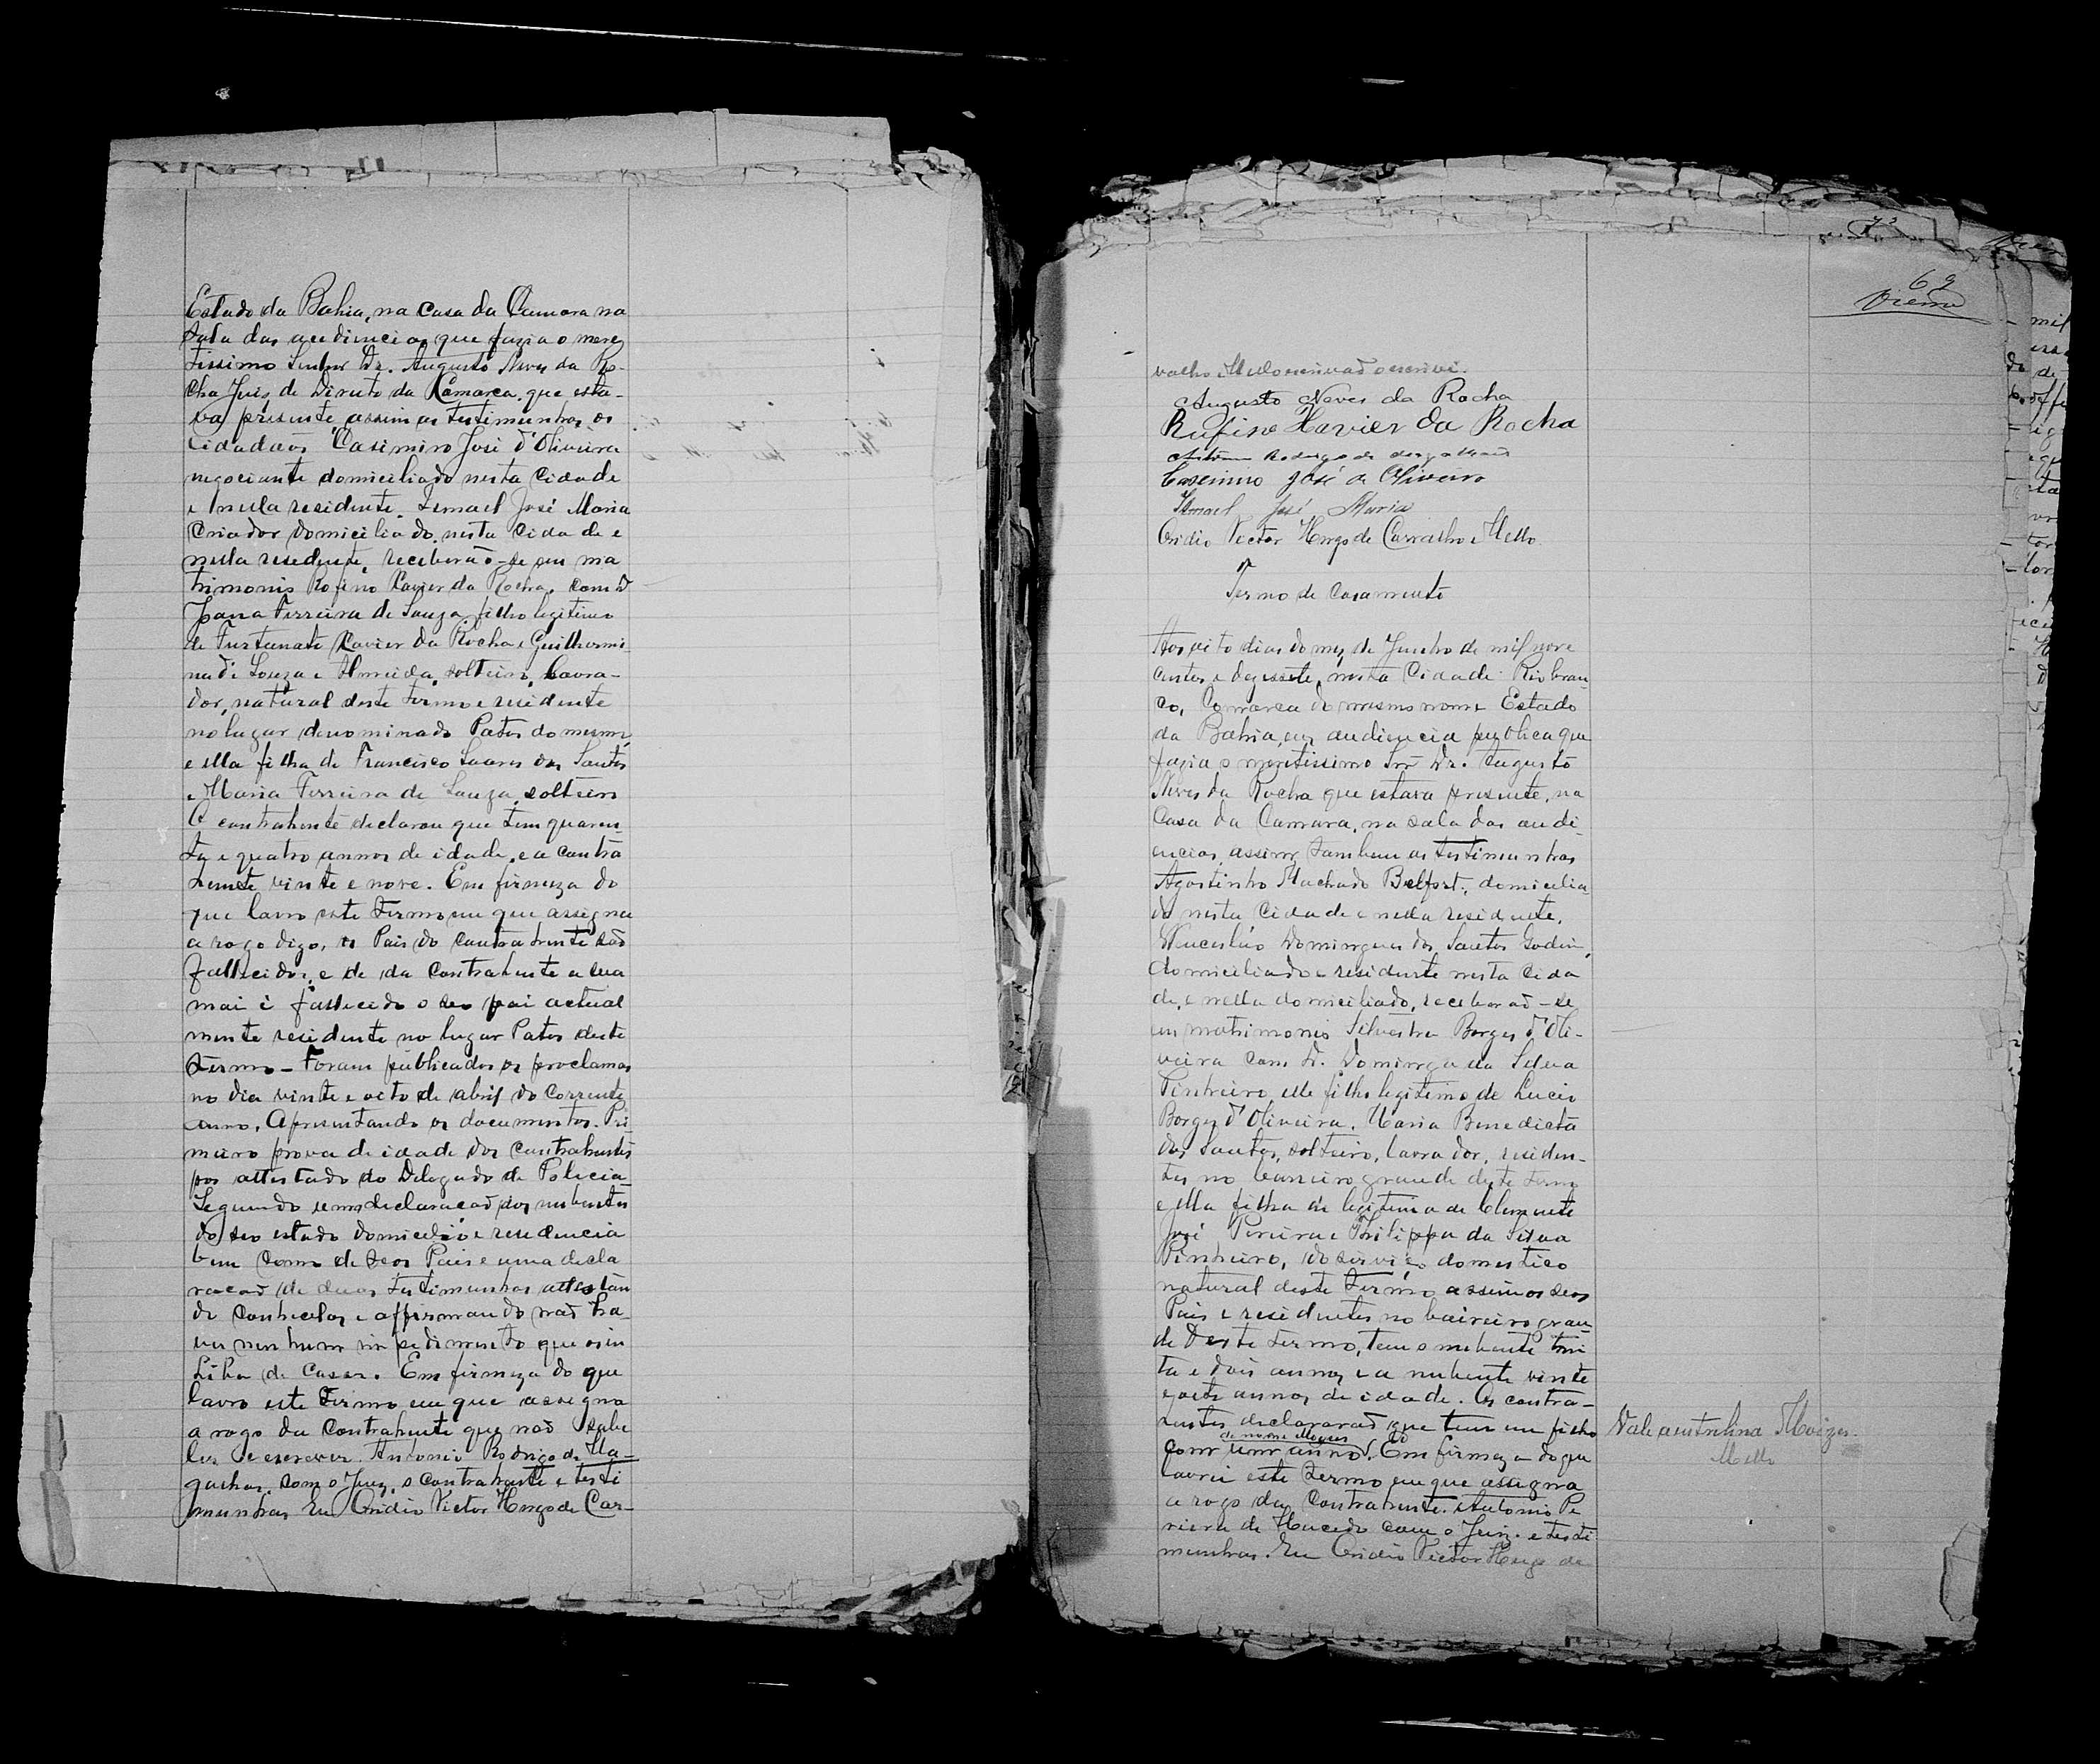 Estado da Bahia, na casa da Camara na
sala das audiencias que fazia o mere
tissimo Senhor Dr. Augusto Neves da Ro-
cha Juis de Direito da Comarca, que esta-
va presente assim as testimunhas os
Cidadaos Casimiro José d'Oliveira
negociante domiciliado nesta Cidade
e nella residente. Ismael José Maria
Criador domiciliado nesta Cidade e
nella residente, receberão-se em ma
trimonio Rofino Xavier da Rocha, com D
Joana Ferreira de Souza filho legitimo
de Furtunato Xavier da Rocha e Guilhermi
na de Souza e Almeida, solteiro, lavra-
dor, natural deste termo e residente
no lugar denominado Patos do mesmo,
e ella filha de Francisco Soares dos Santos
e Maria Ferreira de Souza, solteira
O contrahente declarou que tem quaren-
ta e quatro annos de idade, e a contra
hente vinte e nove. Em firmeza do
que lavro este termo em que assigna
a rogo digo, os Pais do contrahente são
fallecidos, e de da contrahente a sua
mai é fallecida o seo pai actual
mente residente no lugar Patos deste
termo - Foram publicados os proclamas
no dia vinte e oito de abril do corrente
anno. Apresentando os documentos. Pri
meiro prova de idade dos contrahentes
por attestado do Delegado de Policia-
Segundo uma declaracaõ dos nubentes
do seo estado domicilio e residencia
bem como de seos Pais e uma decla
racaõ de duas testimunhas attestan
do conhecelos e affirmando naõ ha-
ver nenhum impedimento que os in
hiba de casar. Em firmeza do que
lavro este termo em que assigna
a rogo da contrahente que naõ sabe
ler e escrever Antonio Rodrigo de Ma-
galhas, com o Juiz, o contrahente e testi
munhas Eu Ovidio Victor Hugo de Car-
69
valho Mello escrivaõ o escrivi.
Augusto Neves da Rocha
Rufino Xavier da Rocha
Casemiro José de Oliveira
Ismael José Maria
Ovidio Victor Hugo de Carvalho e Mello
Termo de Casamento
Aos oito dias do mez de Junho de mil nove
centos e dezessete, nesta Cidade Rio bran-
co, Comarca do mesmo nome Estado
da Bahia, em audiencia publica que
fazia o meritissimo Snr Dr. Augusto
Neves da Rocha que estava presente, na
Casa da Camara, na sala das audi-
encias, assim tambem as testimunhas
Agostinho Machado Belfort, domicilia
do nesta Cidade e nella residente,
Wenceslão Domingues dos Santos
domiciliado e residente nesta Cida
de, e nella domiciliado, receberaõ-se
em matrimonio Silvestre Borges d'Oli-
veira com D. Dominga da Silva
Pinheiro, elle filho legitimo de Lucio
Borges d'Oliveira, Maria Benedicta
dos Santos, solteiro, lavrador, residen-
tes no barreiro grande deste termo
e ella filha de legitima de Clemente
José Pereira e Philippa da Silva
Pinheiro, do serviço domestico
natural deste termo assim os seos
Pais e residentes no baireiro gran
de deste termo, tem o nubente trin
ta e dois annos e a nubente vinte
e oito annos de idade. Os contra-
hentes declararaõ que tem um filho
de nome Moyses
com um anno. Em firmeza do que
lavrei este termo em que assigna
a rogo da contrahente. Antonio Pe
reira de Macedo com o Juiz e testi
munhas. Eu Ovidio Victor Hugo de
Vale a entrelinha Moizes.
Mello